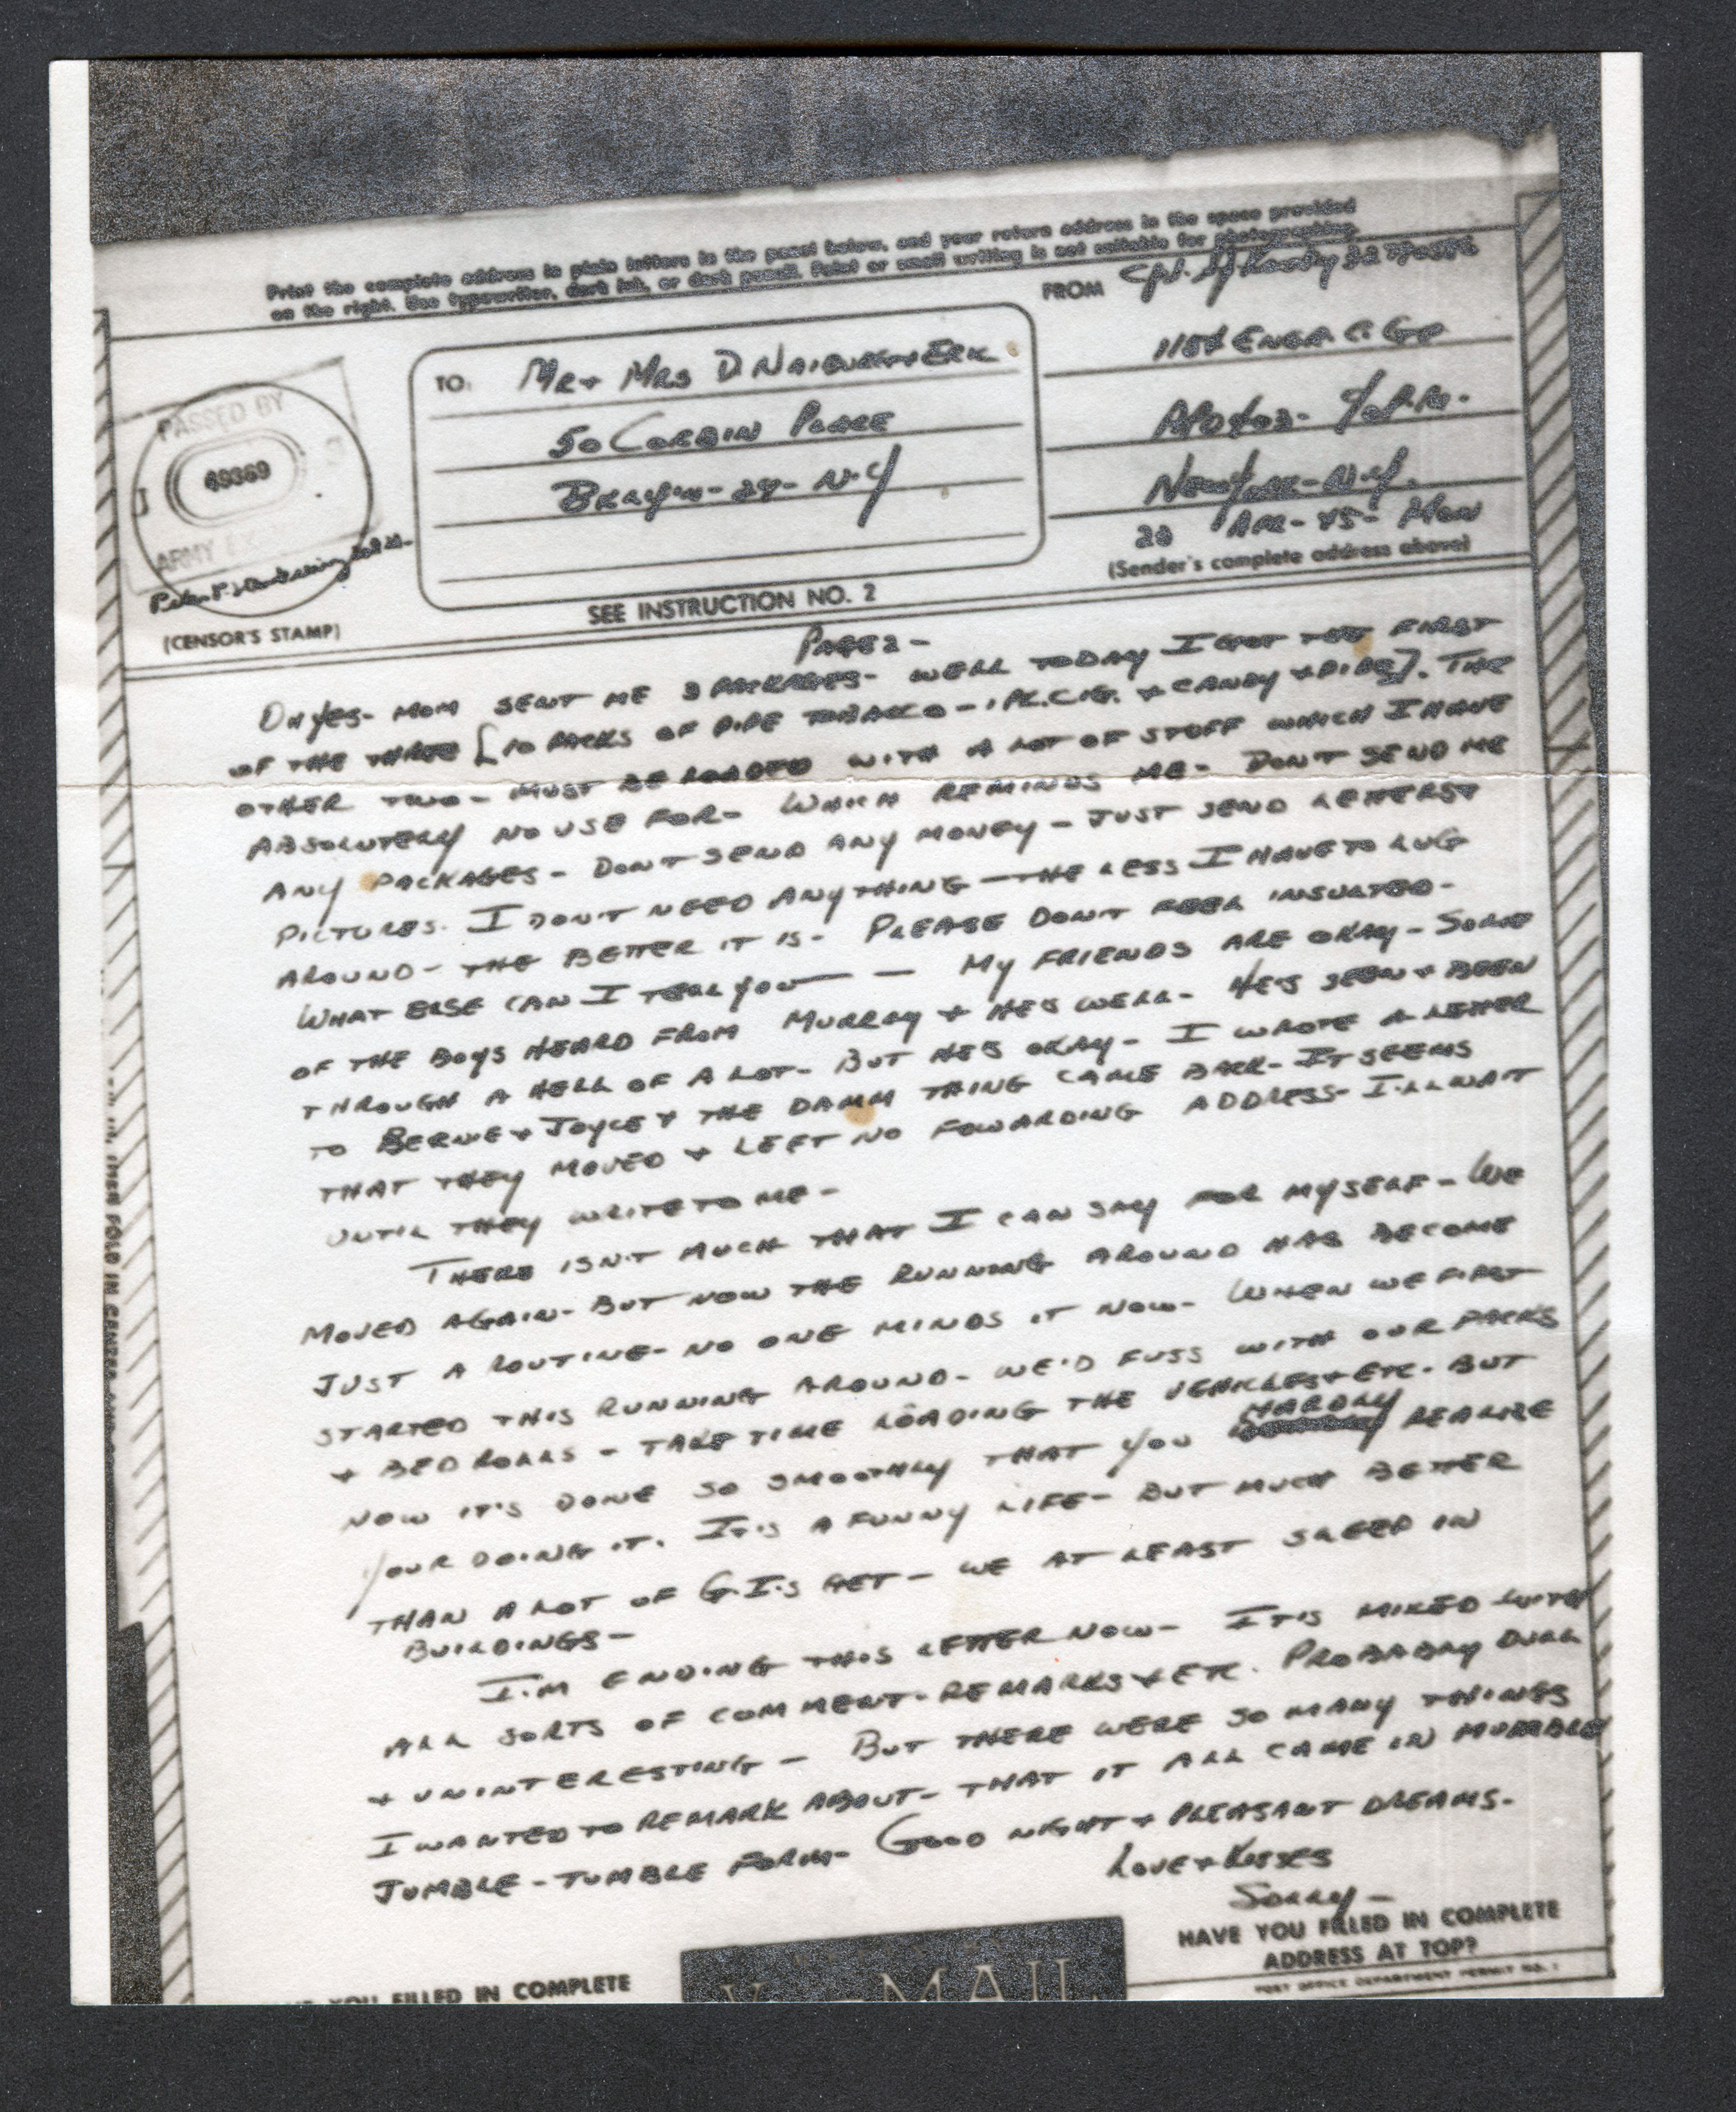 Print the complete address in plain letters in the panel below, and your return address in the space provided
on the right. Use typewriter, dark ink, or dark pencil. Faint or small writing is not suitable for photographing.
FROM Cpl.
1154 ENGR C. GP
TO: MR + MRS D
APO 403 -
50 CORBIN PLACE
NEW YORK - N.Y.
BKLYN - 29 - N.Y
PASSED BY
49369
ARMY
23 APR - 45 - MON
(Sender's complete address above)
SEE INSTRUCTION NO. 2
(CENSOR'S STAMP)
PAGE 2 -
OH YES - MOM SENT ME 3 PACKAGES - WELL TODAY I GOT THE FIRST
OF THE THREE [10 PACKS OF PIPE TOBACCO - 1 PK. CIG. + CANDY + PIPE]. THE
OTHER TWO - MUST BE LOADED WITH A LOT OF STUFF WHICH I HAVE
ABSOLUTELY NO USE FOR - WHICH REMINDS ME - DON'T SEND ME
ANY PACKAGES - DON'T SEND ANY MONEY - JUST SEND LETTERS +
PICTURES. I DON'T NEED ANYTHING - THE LESS I HAVE TO LUG
AROUND - THE BETTER IT IS - PLEASE DON'T FEEL INSULTED -
WHAT ELSE CAN I TELL YOU - - MY FRIENDS ARE OKAY - SOME
OF THE BOYS HEARD FROM MURRAY + HE'S WELL - HE'S SEEN + BEEN
THROUGH A HELL OF A LOT - BUT HE'S OKAY - I WROTE A LETTER
TO BERNIE + JOYCE + THE DAMM THING CAME BACK - IT SEEMS
THAT THEY MOVED + LEFT NO FOWARDING ADDRESS - I'LL WAIT
UNTIL THEY WRITE TO ME -
THERE ISN'T MUCH THAT I CAN SAY FOR MYSELF - WE
MOVED AGAIN - BUT NOW THE RUNNING AROUND HAS BECOME
JUST A ROUTINE - NO ONE MINDS IT NOW - WHEN WE FIRST
STARTED THIS RUNNING AROUND - WE'D FUSS WITH OUR PACKS
+ BED ROLLS - TAKE TIME LOADING THE VEHICLES + ETC. BUT
NOW IT'S DONE SO SMOOTHLY THAT YOU HARDLY REALIZE
YOUR DOING IT. IT'S A FUNNY LIFE - BUT MUCH BETTER
THAN A LOT OF G.I.'S GET - WE AT LEAST SLEEP IN
BUILDINGS -
I'M ENDING THIS LETTER NOW - IT IS MIXED WITH
ALL SORTS OF COMMENT - REMARKS + ETC. PROBABLY DULL
+ UNINTERESTING - BUT THERE WERE SO MANY THINGS
I WANTED TO REMARK ABOUT - THAT IT ALL CAME IN MUMBLE
JUMBLE - TUMBLE FORM - GOOD NIGHT + PLEASANT DREAMS -
LOVE + KISSES
HAVE YOU FILLED IN COMPLETE
ADDRESS AT TOP?
YOU FILLED IN COMPLETE
V-MAIL
POST OFFICE DEPARTMENT PERMIT NO. 1